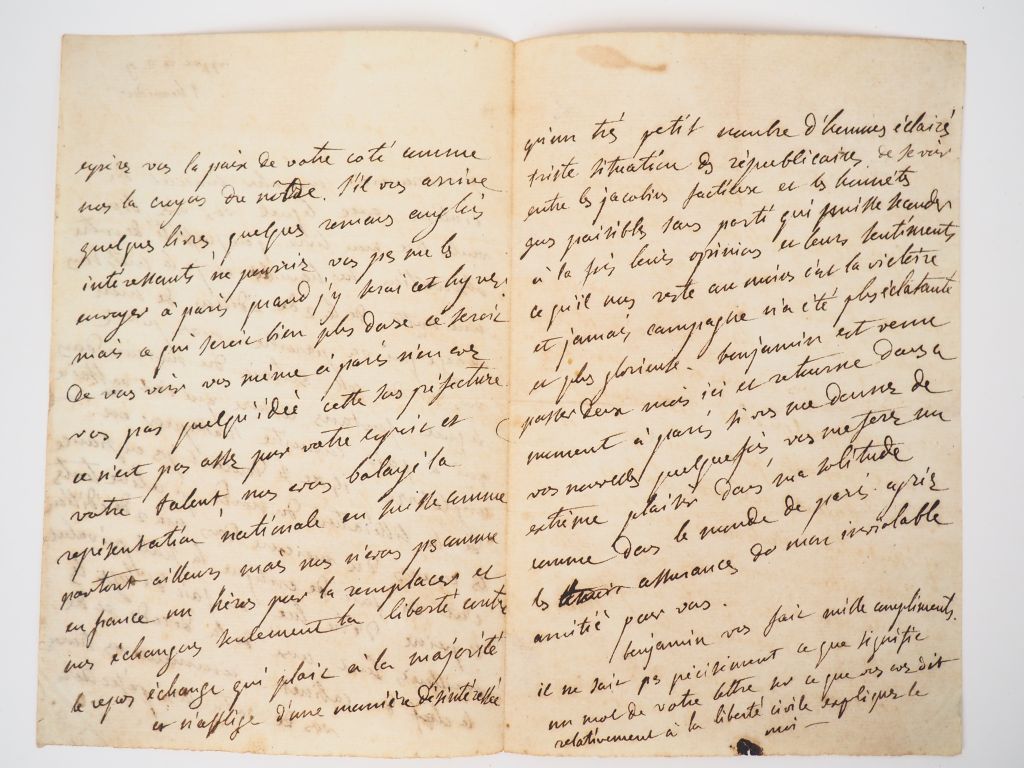 espérez vous la paix de votre coté comme
nous la croyons du nôtre. s'il vous arrive
quelques livres quelques romans anglais
intéressants ne pourriez vous pas me les
envoyer à paris quand j'y serai cet hyver
mais ce qui seroit bien plus doux ce seroit
de vous voir vous même à paris n'en avez
vous pas quelqu'idée cette sous préfecture
ce n'est pas assez pour votre esprit et
votre talent, nous avons balayé la
représentation nationale en suisse comme
partout ailleurs mais nous n'avons pas comme
en france un héros pour la remplacer et
nous échangeons seulement la liberté contre
le repos échange qui plait à la majorité
et n'afflige d'une manière désintéressée
qu'un très petit nombre d'hommes éclairés
triste situation des républicains de se voir
entre les jacobins factieux et les honnêtes
gens paisibles sans parti qui puisse seconder
à la fois leurs opinions et leurs sentiments
ce qu'il nous reste au moins c'est la victoire
et jamais campagne n'a été plus éclatante
et plus glorieuse. benjamin est venu
passer deux mois ici et retourne dans ce
moment à paris si vous me donnez de
vos nouvelles quelquefois, vous me ferez un
extrême plaisir dans ma solitude
comme dans le monde de paris. agréez
les assurances de mon inviolable
amitié pour vous.
benjamin vous fait mille compliments.
il ne sait pas précisément ce que signifie
un mot de votre lettre sur ce que vous avez dit
relativement à la liberté civile expliquez le
moi —